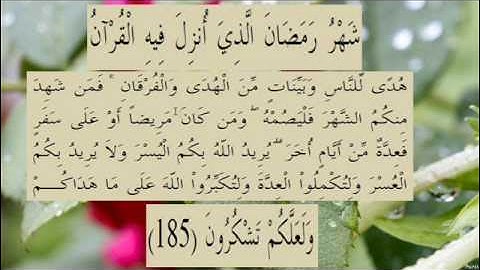 شَهْرُ رَمَضَانَ الَّذِيَ أُنزِلَ فِيهِ الْقُرْآنُ
هُدًى لِّلنَّاسِ وَبَيِّنَاتٍ مِّنَ الْهُدَى وَالْفُرْقَانِ ۚ فَمَن شَهِدَ
مِنكُمُ الشَّهْرَ فَلْيَصُمْهُ ۖ وَمَن كَانَ مَرِيضاً أَوْ عَلَى سَفَرٍ
فَعِدَّةٌ مِّنْ أَيَّامٍ أُخَرَ ۗ يُرِيدُ اللَّهُ بِكُمُ الْيُسْرَ وَلاَ يُرِيدُ بِكُمُ
الْعُسْرَ وَلِتُكْمِلُواْ الْعِدَّةَ وَلِتُكَبِّرُواْ اللَّهَ عَلَى مَا هَدَاكُمْ
وَلَعَلَّكُمْ تَشْكُرُونَ (185)